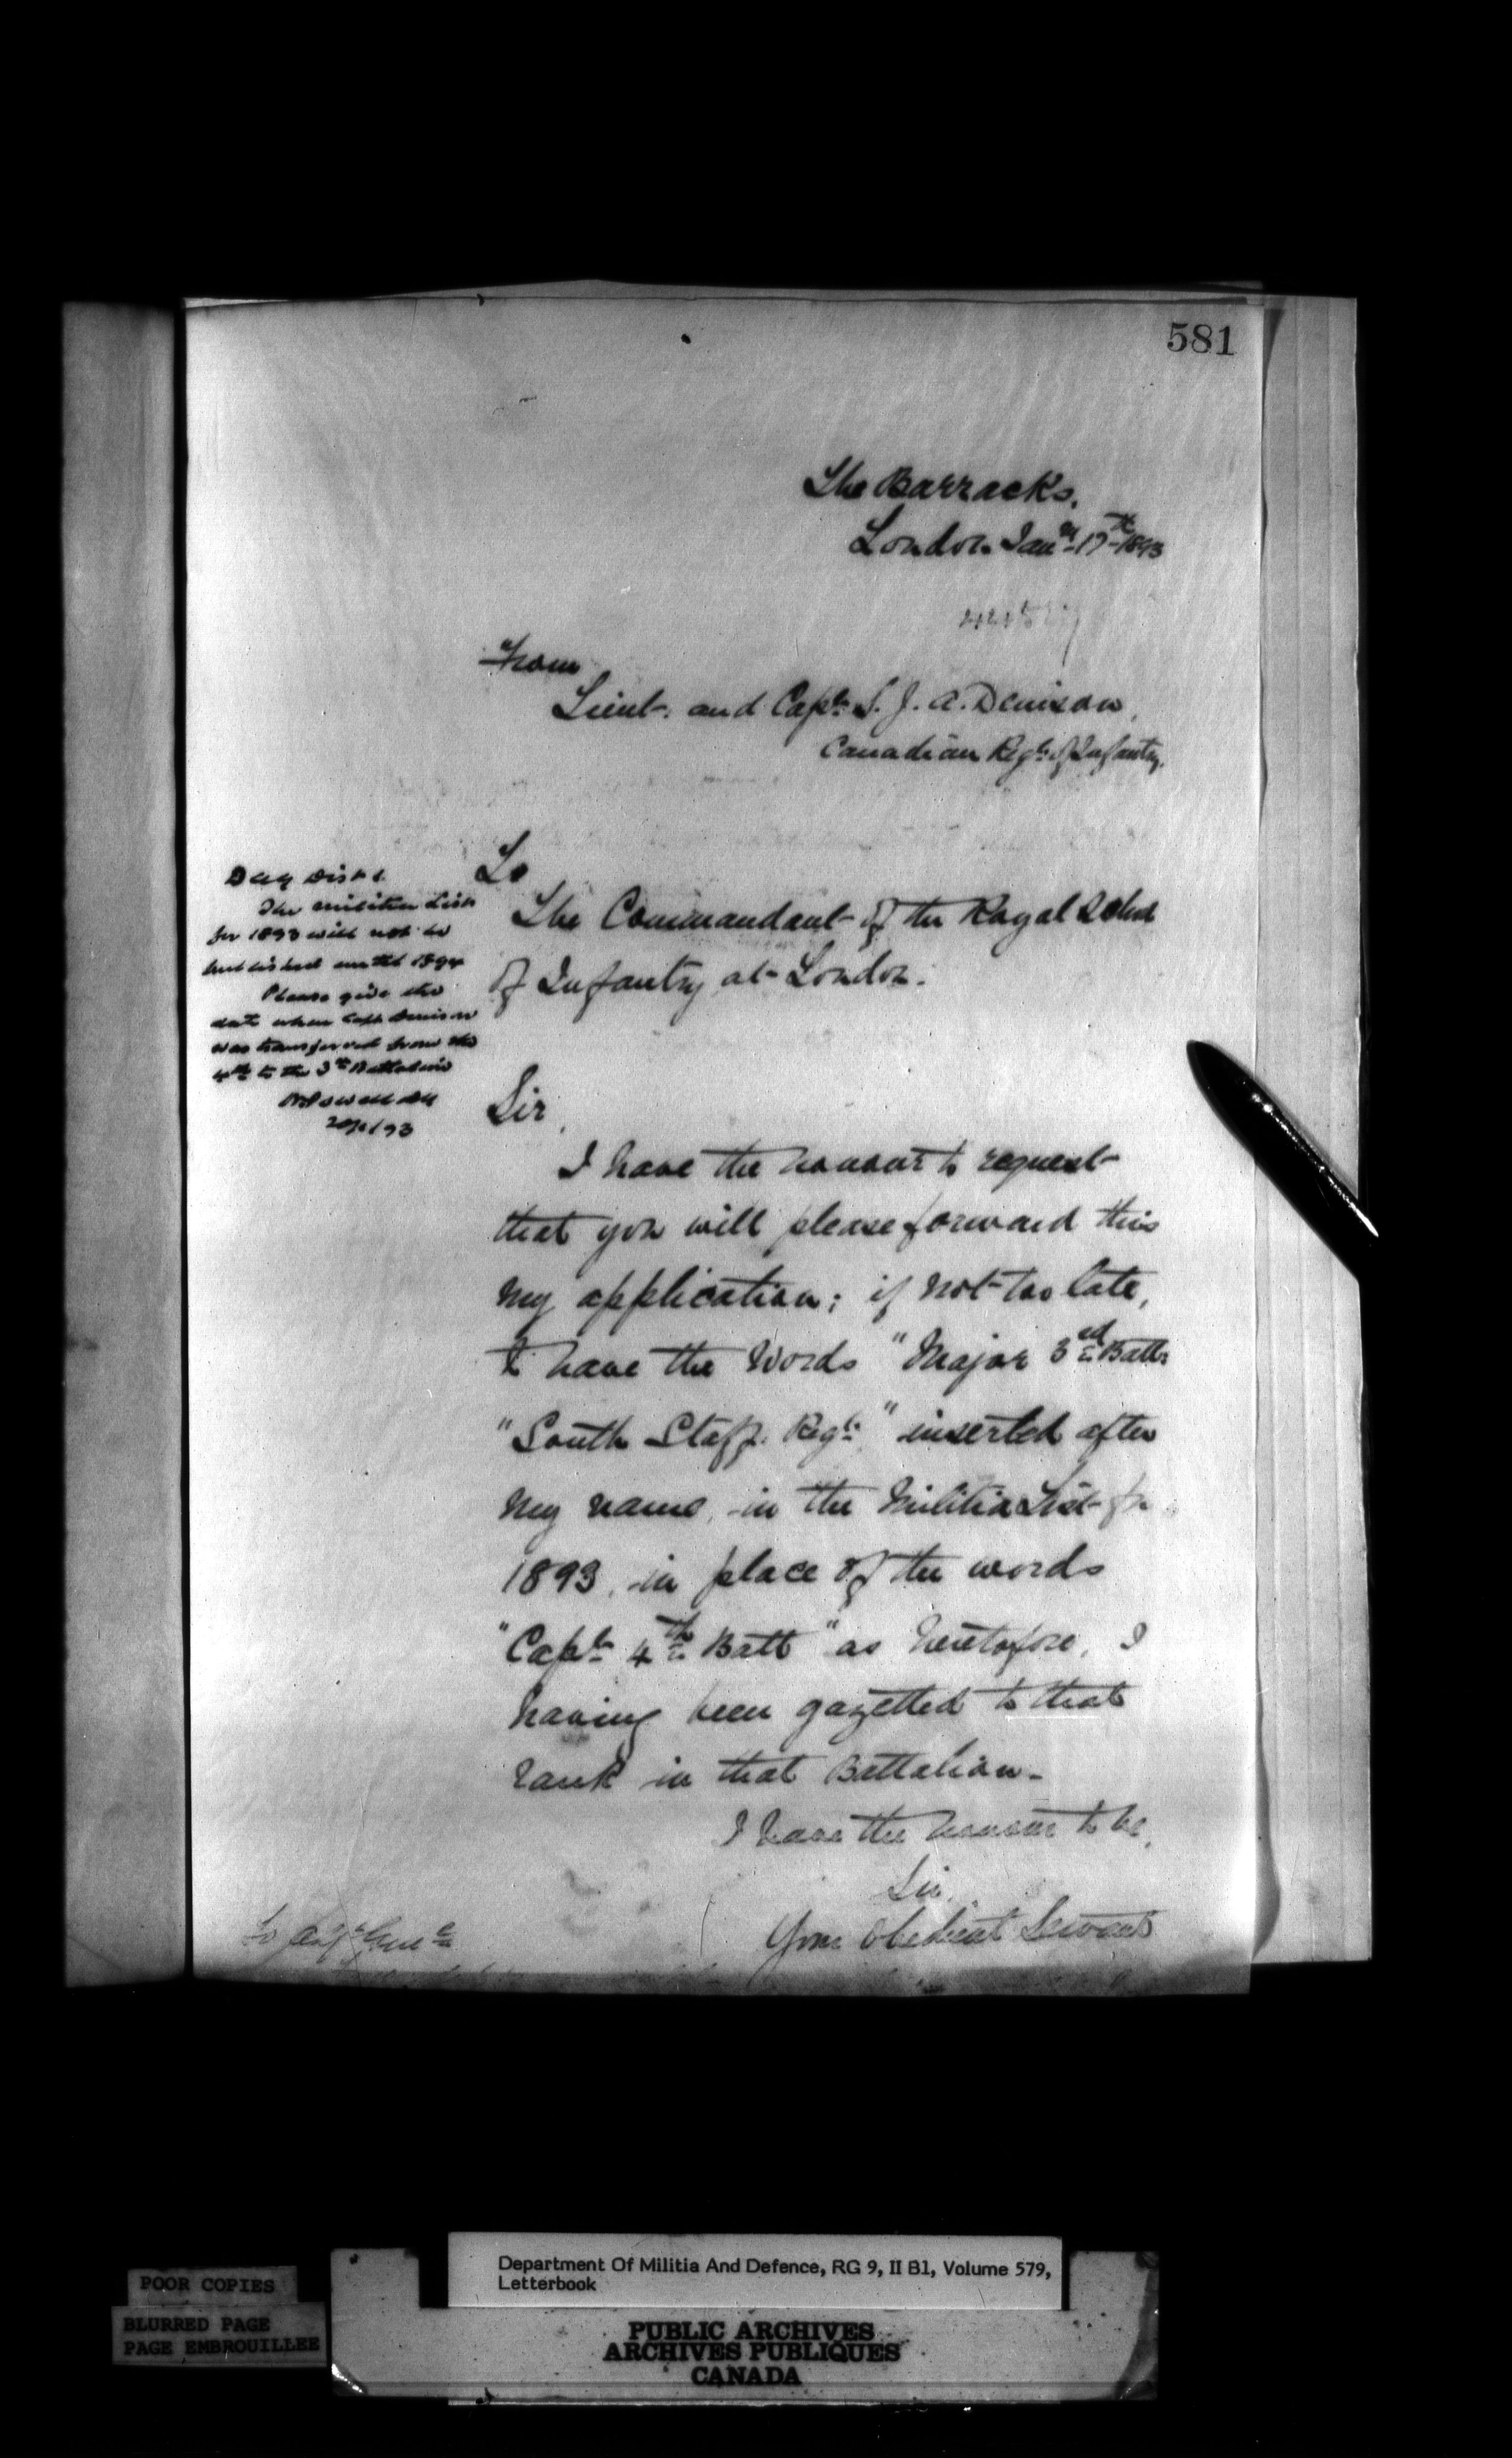 581
The Barracks,
London Jany 17th 1893
From
Lieut. and Capt. S. J. A. Denison,
Canadian Regt. of Infantry.
To
The Commandant of the Royal School
of Infantry at London.
DAG Dist 1
The militia List
for 1893 will not be
published until 1894
Please give the
date when Capt Denison
was transferred from the
4th to the 3rd Battalion
Powell
Sir,
I have the honour to request
that you will please forward this
my application; if not too late,
to have the words "Major 3rd Battn
"South Staff. Regt." inserted after
my name, in the Militia List for
1893, in place of the words
"Capt. 4th Batt" as heretofore, I
having been gazetted to that
rank in that Battalion.
I have the honour to be,
Sir,
Your obedient Servant
To Adjt Genl
Department Of Militia And Defence, RG 9, II B1, Volume 579,
Letterbook
POOR COPIES
BLURRED PAGE
PAGE EMBROUILLEE
PUBLIC ARCHIVES
ARCHIVES PUBLIQUES
CANADA